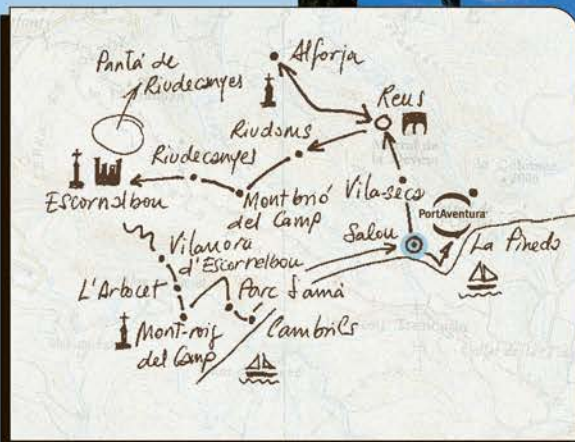 Alforja
Pantà de
Riudecanyes
Reus
Riudoms
Riudecanyes
Vila-seca
Escornalbou
Montbrió
del Camp
PortAventura
Salou
La Pineda
Vilanova
d'Escornalbou
L'Arbocet
Parc Samà
Mont-roig
del Camp
Cambrils